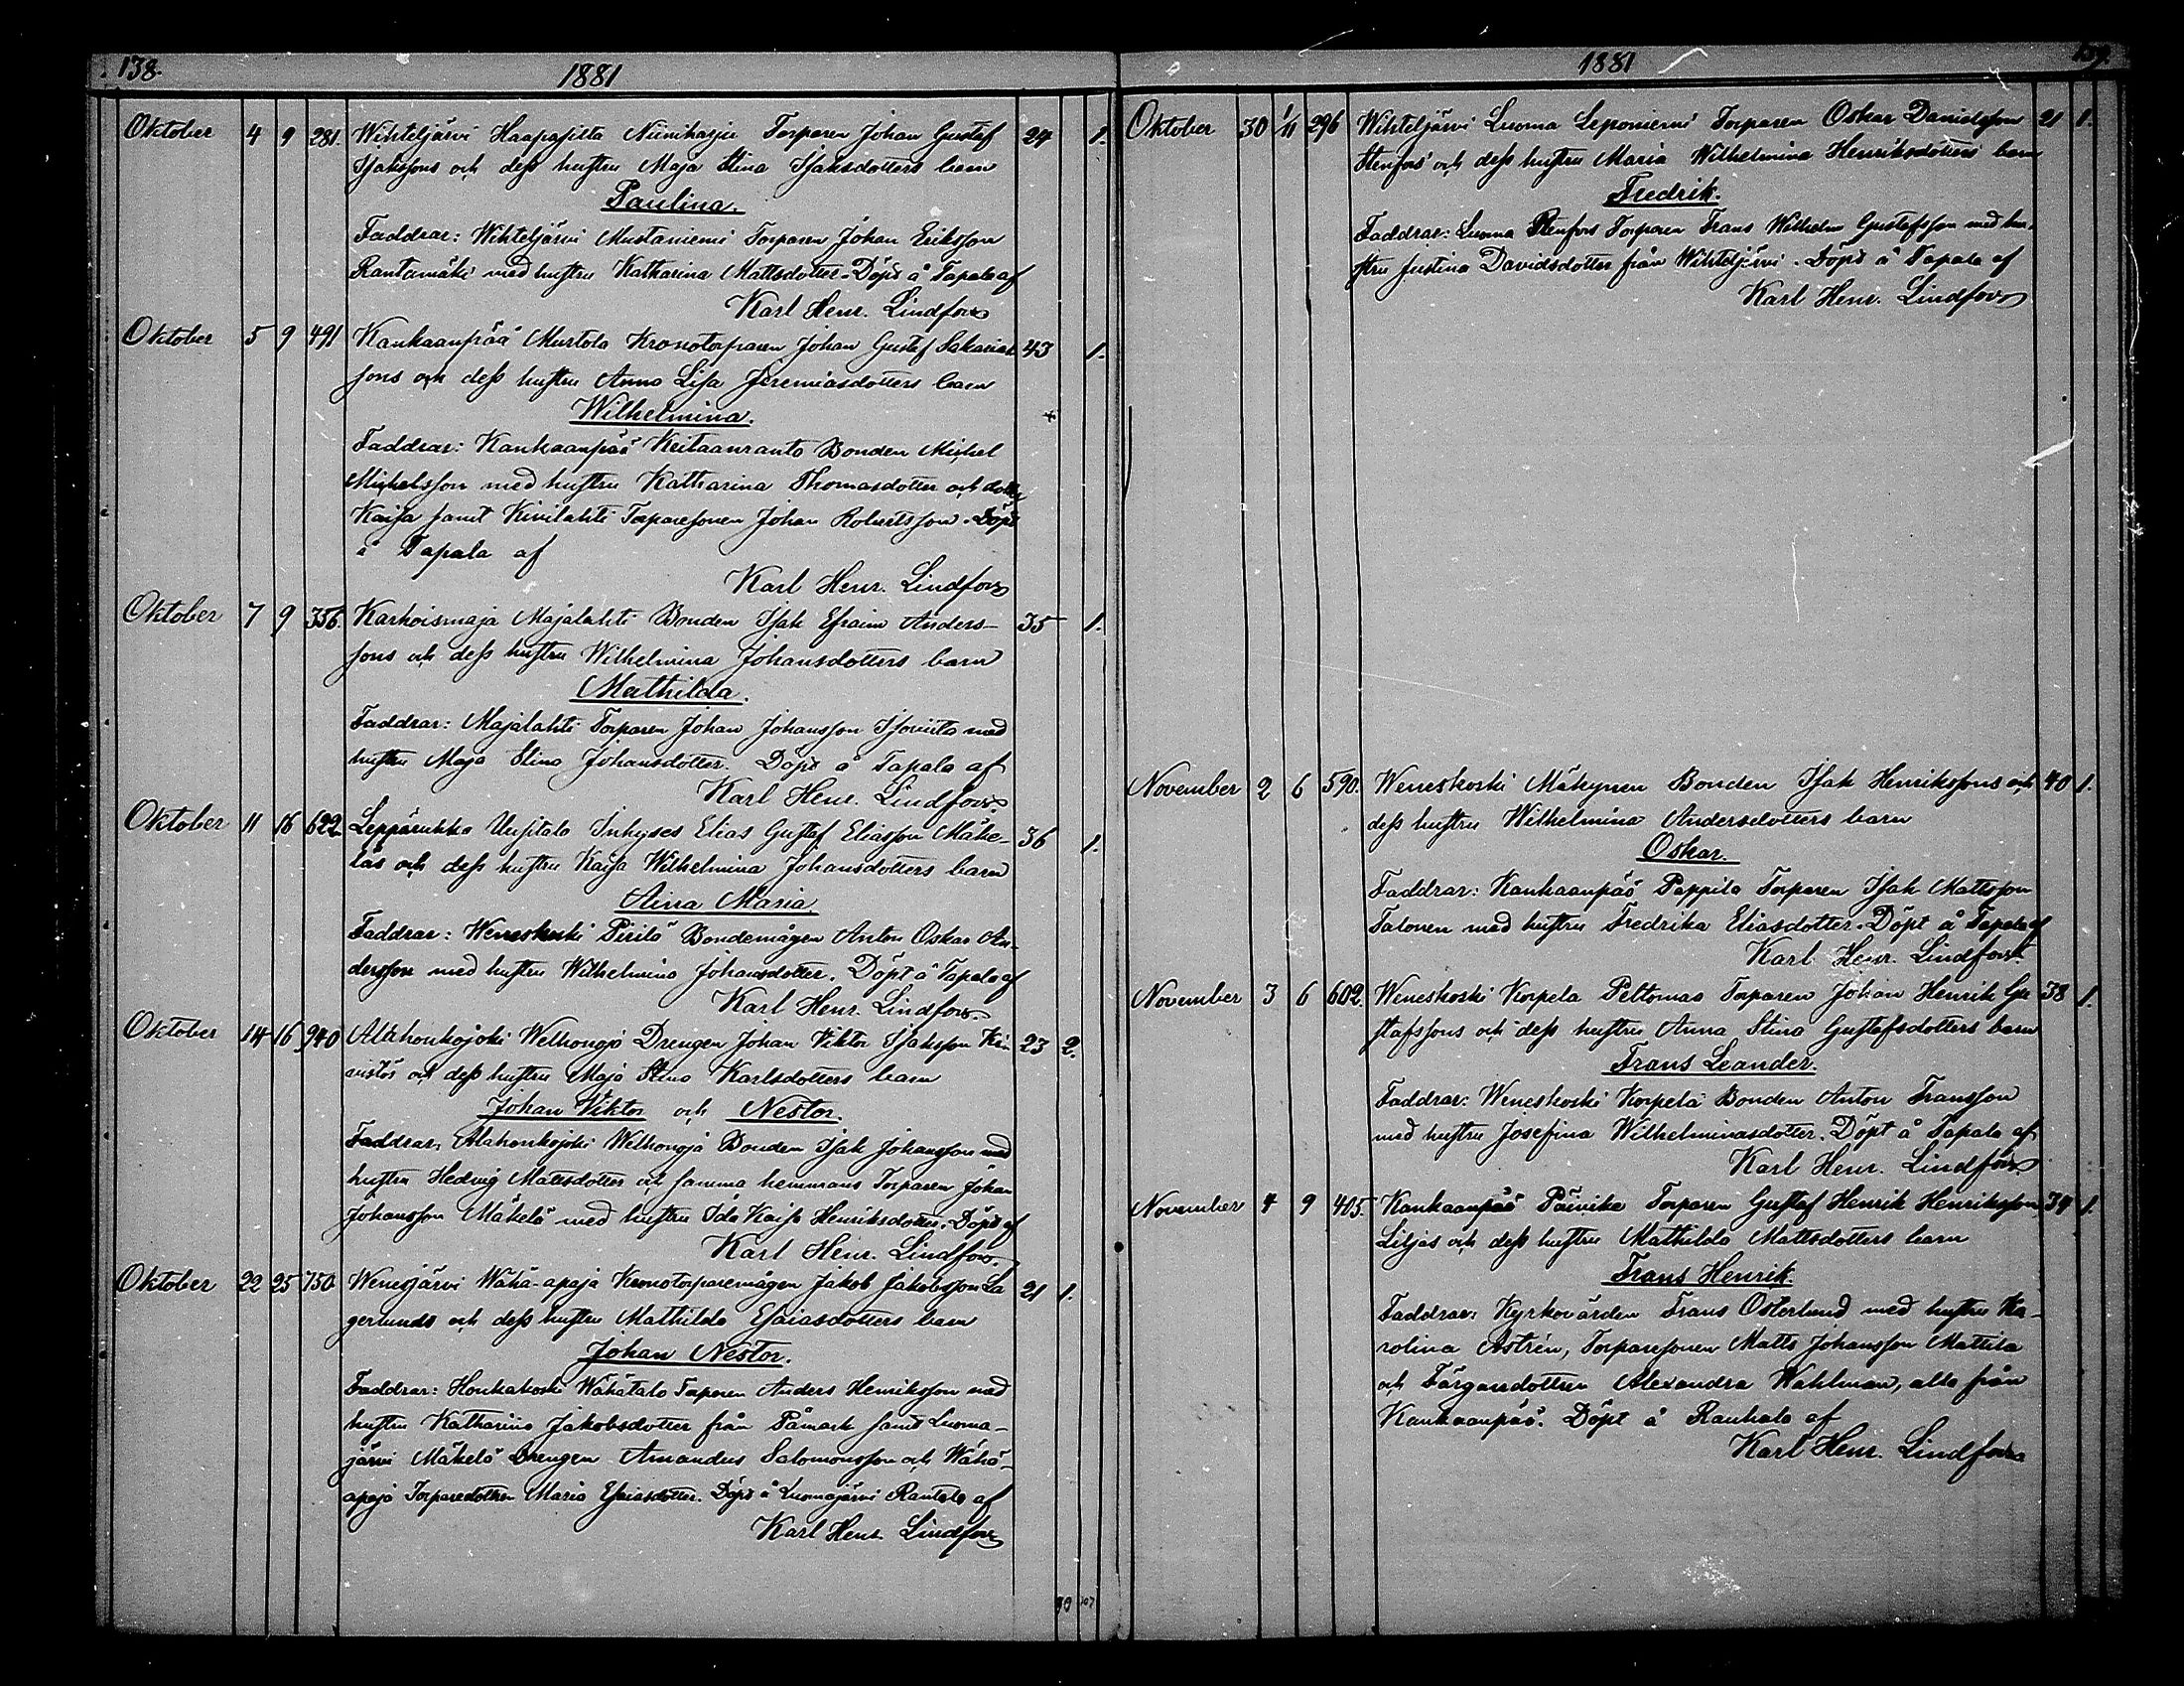 138.
1881
Oktober 4 9 281. Wihteljärvi Haapasilta Niiniharju Torparen Johan Gustaf 24 1.
Isakssons och dess hustru Maja Stina Isaksdotters barn
Paulina.
Faddrar: Wihteljärvi Mustaniemi Torparen Johan Eriksson
Rantamäki med hustru Katharina Mattsdotter. Döpt å Tapala af
Karl Henr. Lindfors
Oktober 5 9 491 Kankaanpää Murtola Kronotorparen Johan Gustaf Sakarias 43 1.
sons och dess hustru Anna Lisa Jeremiasdotters barn
Wilhelmina. +
Faddrar: Kankaanpää Keitaanranto Bonden Michel
Michelsson med hustru Katharina Thomasdotter och dotter
Kaisa samt Kivilahti Torparesonen Johan Robertsson. Döpt
å Tapala af
Karl Henr. Lindfors
Oktober 7 9 356. Karhoismaja Majalahti Bonden Isak Efraim Anders- 35 1.
sons och dess hustru Wilhelmina Johansdotters barn
Mathilda.
Faddrar: Majalahti Torparen Johan Johansson Isoviita med
hustru Maja Stina Johansdotter. Döpt å Tapala af
Karl Henr. Lindfors.
Oktober 11 16 622 Leppäruhka Uusitalo Inhyses Elias Gustaf Eliasson Mäke- 36 1.
läs och dess hustru Kaisa Wilhelmina Johansdotters barn
Aina Maria.
Faddrar: Weneskoski Pirilä Bondemågen Anton Oskar An-
dersson med hustru Wilhelmina Johansdotter. Döpt å Tapala af
Karl Henr. Lindfors.
Oktober 14 16 940 Alahonkajoki Welhongja Drengen Johan Viktor Isaksson Kii 23 2.
vistös och dess hustru Maja Stina Karlsdotters barn
Johan Viktor och Nestor.
Faddrar, Alahonkajoki Welhongja Bonden Isak Johansson med
hustru Hedvig Mattsdotter och samma hemmans Torparen Johan
Johansson Mäkelä med hustru Ida Kaisa Henriksdotter. Döpt af
Karl Henr. Lindfors.
Oktober 22 25 750 Wenesjärvi Wähä-apaja Kronotorparemågen Jakob Jakobsson La 21 1.
gerlunds och dess hustru Mathilda Esaiasdotters barn
Johan Nestor.
Faddrar: Honkakoski Wähätalo Torparen Anders Henriksson med
hustru Katharina Jakobsdotter från Påmark samt Luoma-
järvi Mäkelä Drengen Amandus Salomonsson och Wähä-
apaja Torparedottren Maria Esaiasdotter. Döpt å Luomajärvi Rantala af
Karl Henr. Lindfors
90 107
139.
1881
Oktober 30 1/11 296 Wihteljärvi Luoma Leponiemi Torparen Oskar Davidsson 21 1.
Stenfors' och dess hustru Maria Wilhelmina Henriksdotters barn
Fredrik.
Faddrar: Luoma Stenfors Torparen Frans Wilhelm Gustafsson med hu-
stru Justina Davidsdotter från Wihteljärvi. Döpt å Tapala af
Karl Henr. Lindfors
November 2 6 590. Weneskoski Mäkynen Bonden Isak Henrikssons och 40 1.
dess hustru Wilhelmina Andersdotters barn
Oskar.
Faddrar: Kankaanpää Pappila Torparen Isak Mattsson
Talonen med hustru Fredrika Eliasdotter. Döpt å Tapala af
Karl Henr. Lindfors.
November 3 6 602. Weneskoski Korpela Peltomaa Torparen Johan Henrik Gu 38 1.
stafssons och dess hustru Anna Stina Gustafsdotters barn
Frans Leander.
Faddrar: Weneskoski Korpela Bonden Anton Fransson
med hustru Josefina Wilhelminasdotter. Döpt å Tapala af
Karl Henr. Lindfors
November 4 9 405. Kankaanpää Päivike Torparen Gustaf Henrik Henriksson 34 1.
Liljas och dess hustru Mathilda Mattsdotters barn
Frans Henrik.
Faddrar: Kyrkovärden Frans Österlund med hustru Ka-
rolina Astrén, Torparesonen Matts Johansson Mattila
och Färgaredottren Alexandra Wahlman, alla från
Kankaanpää. Döpt å Rauhala af
Karl Henr. Lindfors